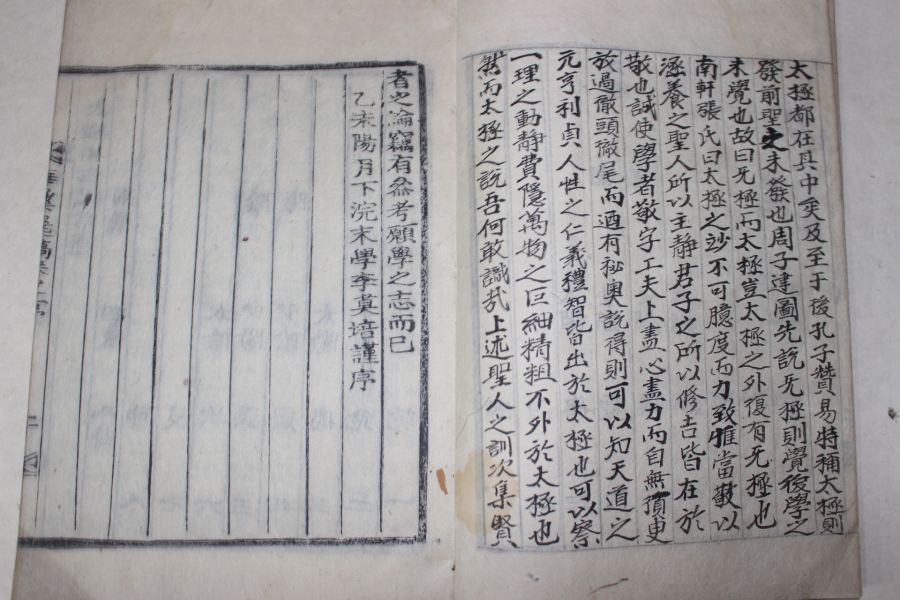 太極都在其中矣及至于後孔子贊易特稱太極則
發前聖之未發也周子建圖先說无極則覺後學之
未覺也故曰无極而太極豈太極之外復有无極也
南軒張氏曰太極之妙不可臆度而力致惟當敬以
涵養之聖人所以主静君子之所以修吉皆在於
敬也誠使學者敬字工夫上盡心盡力而自無須臾
放過徹頭徹尾而迺有祕奧說得則可以知天道之
元亨利貞人性之仁義禮智皆出於太極也可以察
一理之動静費隱萬物之巨細精粗不外於太極也
然而太極之說吾何敢識㢤上述聖人之訓次集賢
者之論竊有叅考願學之志而已
乙未陽月下浣末學李 培謹序